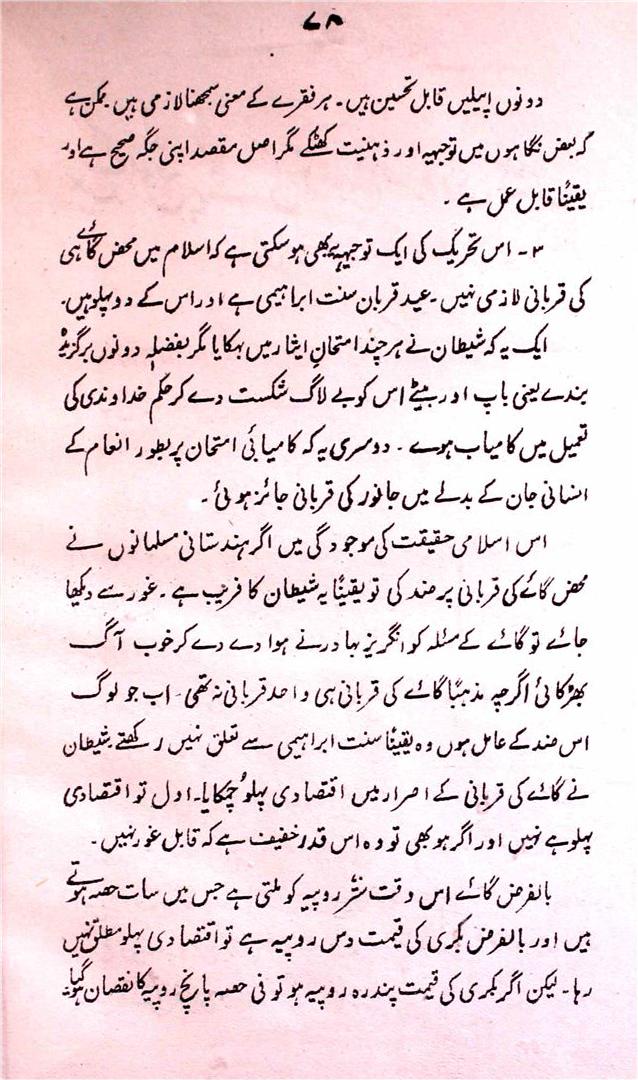 ۷۸
دونوں اپیلیں قابل تحسین ہیں۔ ہر فقرے کے معنی سمجھنا لازمی ہیں ممکن ہے
کہ بعض نگاہوں میں توجیہہ اور ذہنیت کھٹکے مگر اصل مقصد اپنی جگہ صحیح ہے اور
یقیناً قابل عمل ہے۔
۳۔ اس تحریک کی ایک توجیہہ یہ بھی ہو سکتی ہے کہ اسلام میں محض گائے ہی
کی قربانی لازمی نہیں۔ عید قربان سنت ابراہیمی ہے اور اس کے دو پہلو ہیں۔
ایک یہ کہ شیطان نے ہر چند امتحانِ ایثار میں بہکایا مگر بفضلہٖ دونوں برگزیدہ
بندے یعنی باپ اور بیٹے اس کو بے لاگ شکست دے کر حکم خداوندی کی
تعمیل میں کامیاب ہوے۔ دوسری یہ کہ کامیابیٔ امتحان پر بطور انعام کے
انسانی جان کے بدلے میں جانور کی قربانی جائز ہوئی۔
اس اسلامی حقیقت کی موجودگی میں اگر ہندستانی مسلمانوں نے
محض گائے کی قربانی پر ضد کی تو یقیناً یہ شیطان کا فریب ہے۔ غور سے دیکھا
جائے تو گائے کے مسئلہ کو انگریز بہادر نے ہوا دے دے کر خوب آگ
بھڑکائی اگرچہ مذہباً گائے کی قربانی ہی واحد قربانی نہ تھی۔ اب جو لوگ
اس ضد کے عامل ہوں وہ یقیناً سنت ابراہیمی سے تعلق نہیں رکھتے شیطان
نے گائے کی قربانی کے اصرار میں اقتصادی پہلو چمکایا۔ اول تو اقتصادی
پہلو ہے نہیں اور اگر ہو بھی تو وہ اس قدر خفیف ہے کہ قابل غور نہیں۔
بالفرض گائے اس وقت ستّر روپیہ کو ملتی ہے جس میں سات حصہ ہوتے
ہیں اور بالفرض بکری کی قیمت دس روپیہ ہے تو اقتصادی پہلو مطلق نہیں
رہا۔ لیکن اگر بکری کی قیمت پندرہ روپیہ ہو تو فی حصہ پانچ روپیہ کا نقصان ہو گیا۔